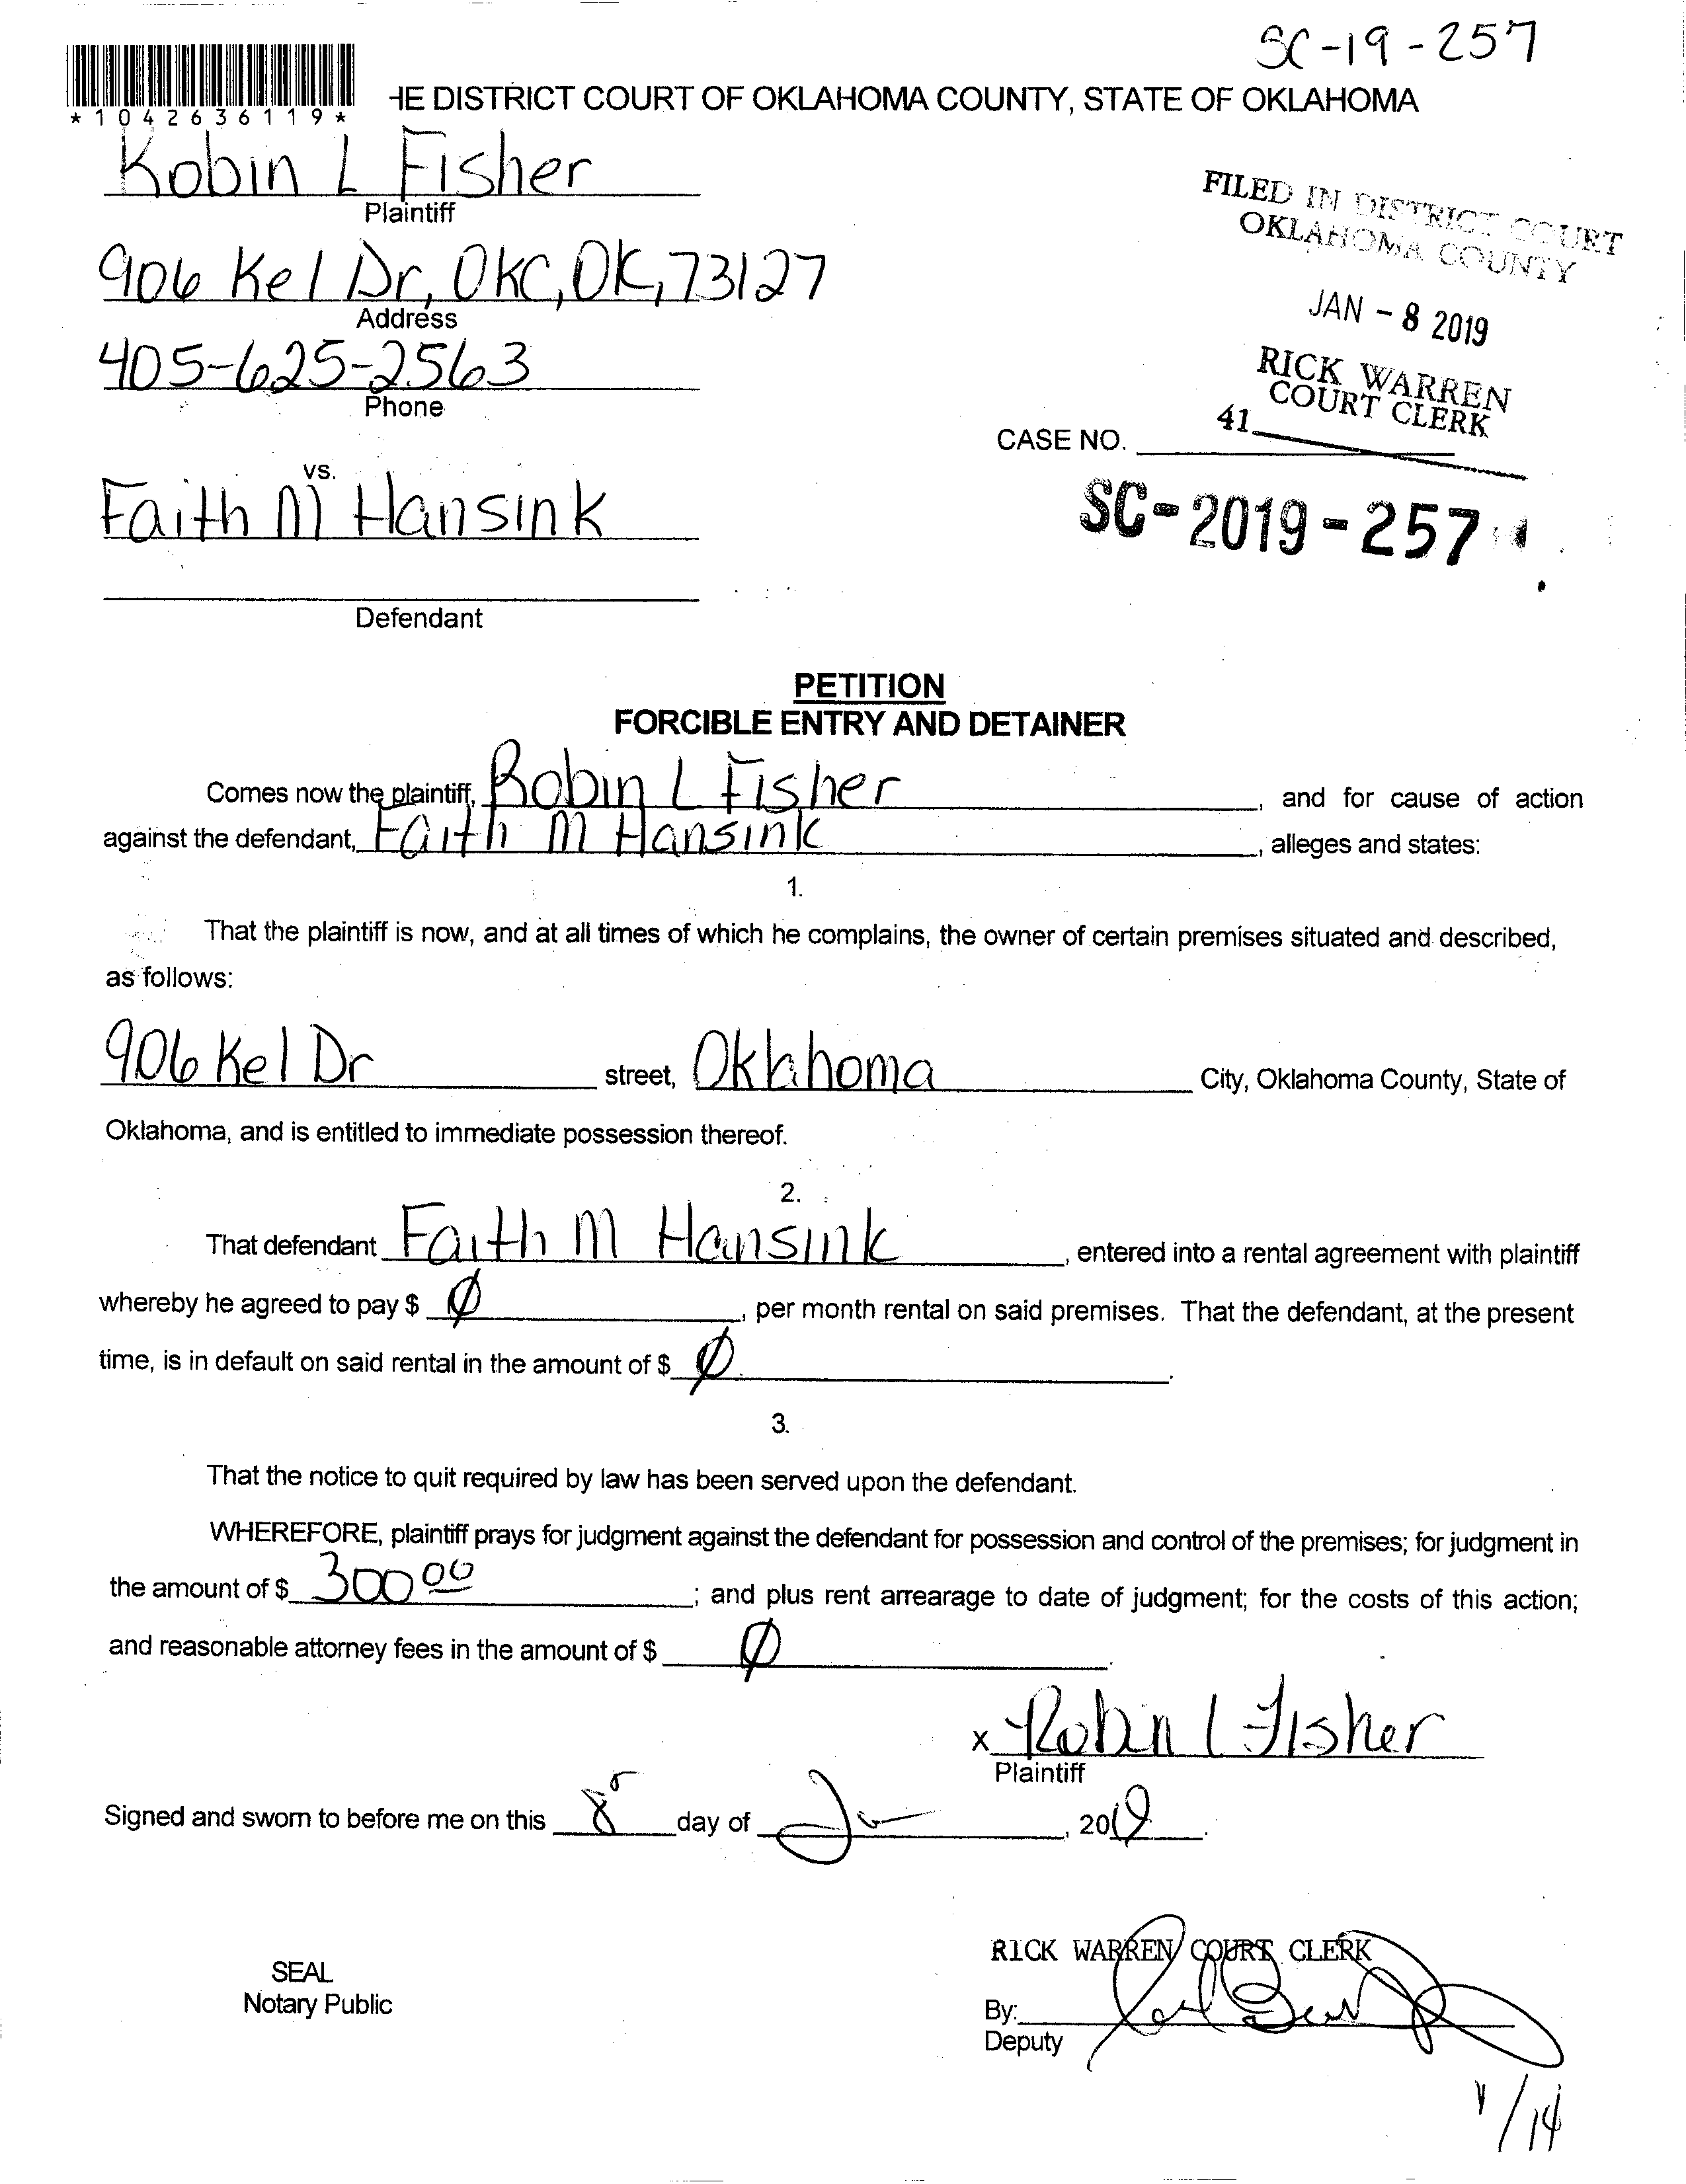 SC-19-257
*1042636119*
HE DISTRICT COURT OF OKLAHOMA COUNTY, STATE OF OKLAHOMA
Robin L Fisher
Plaintiff
FILED IN DISTRICT COURT
OKLAHOMA COUNTY
906 Kel Dr, OKC, OK, 73127
Address
JAN - 8 2019
405-625-2563
Phone
RICK WARREN
COURT CLERK
41
CASE NO.
vs.
Faith M Hansink
SC-2019-257
Defendant
PETITION
FORCIBLE ENTRY AND DETAINER
Comes now the plaintiff, Robin L Fisher, and for cause of action
against the defendant, Faith M Hansink, alleges and states:
1.
That the plaintiff is now, and at all times of which he complains, the owner of certain premises situated and described,
as follows:
906 Kel Dr street, Oklahoma City, Oklahoma County, State of
Oklahoma, and is entitled to immediate possession thereof.
2.
That defendant Faith M Hansink, entered into a rental agreement with plaintiff
whereby he agreed to pay $ Ø, per month rental on said premises. That the defendant, at the present
time, is in default on said rental in the amount of $ Ø.
3.
That the notice to quit required by law has been served upon the defendant.
WHEREFORE, plaintiff prays for judgment against the defendant for possession and control of the premises; for judgment in
the amount of $ 300 00; and plus rent arrearage to date of judgment; for the costs of this action;
and reasonable attorney fees in the amount of $ Ø.
x Robin L Fisher
Plaintiff
Signed and sworn to before me on this 8 day of , 2019.
RICK WARREN COURT CLERK
SEAL
Notary Public
By:
Deputy
1/14